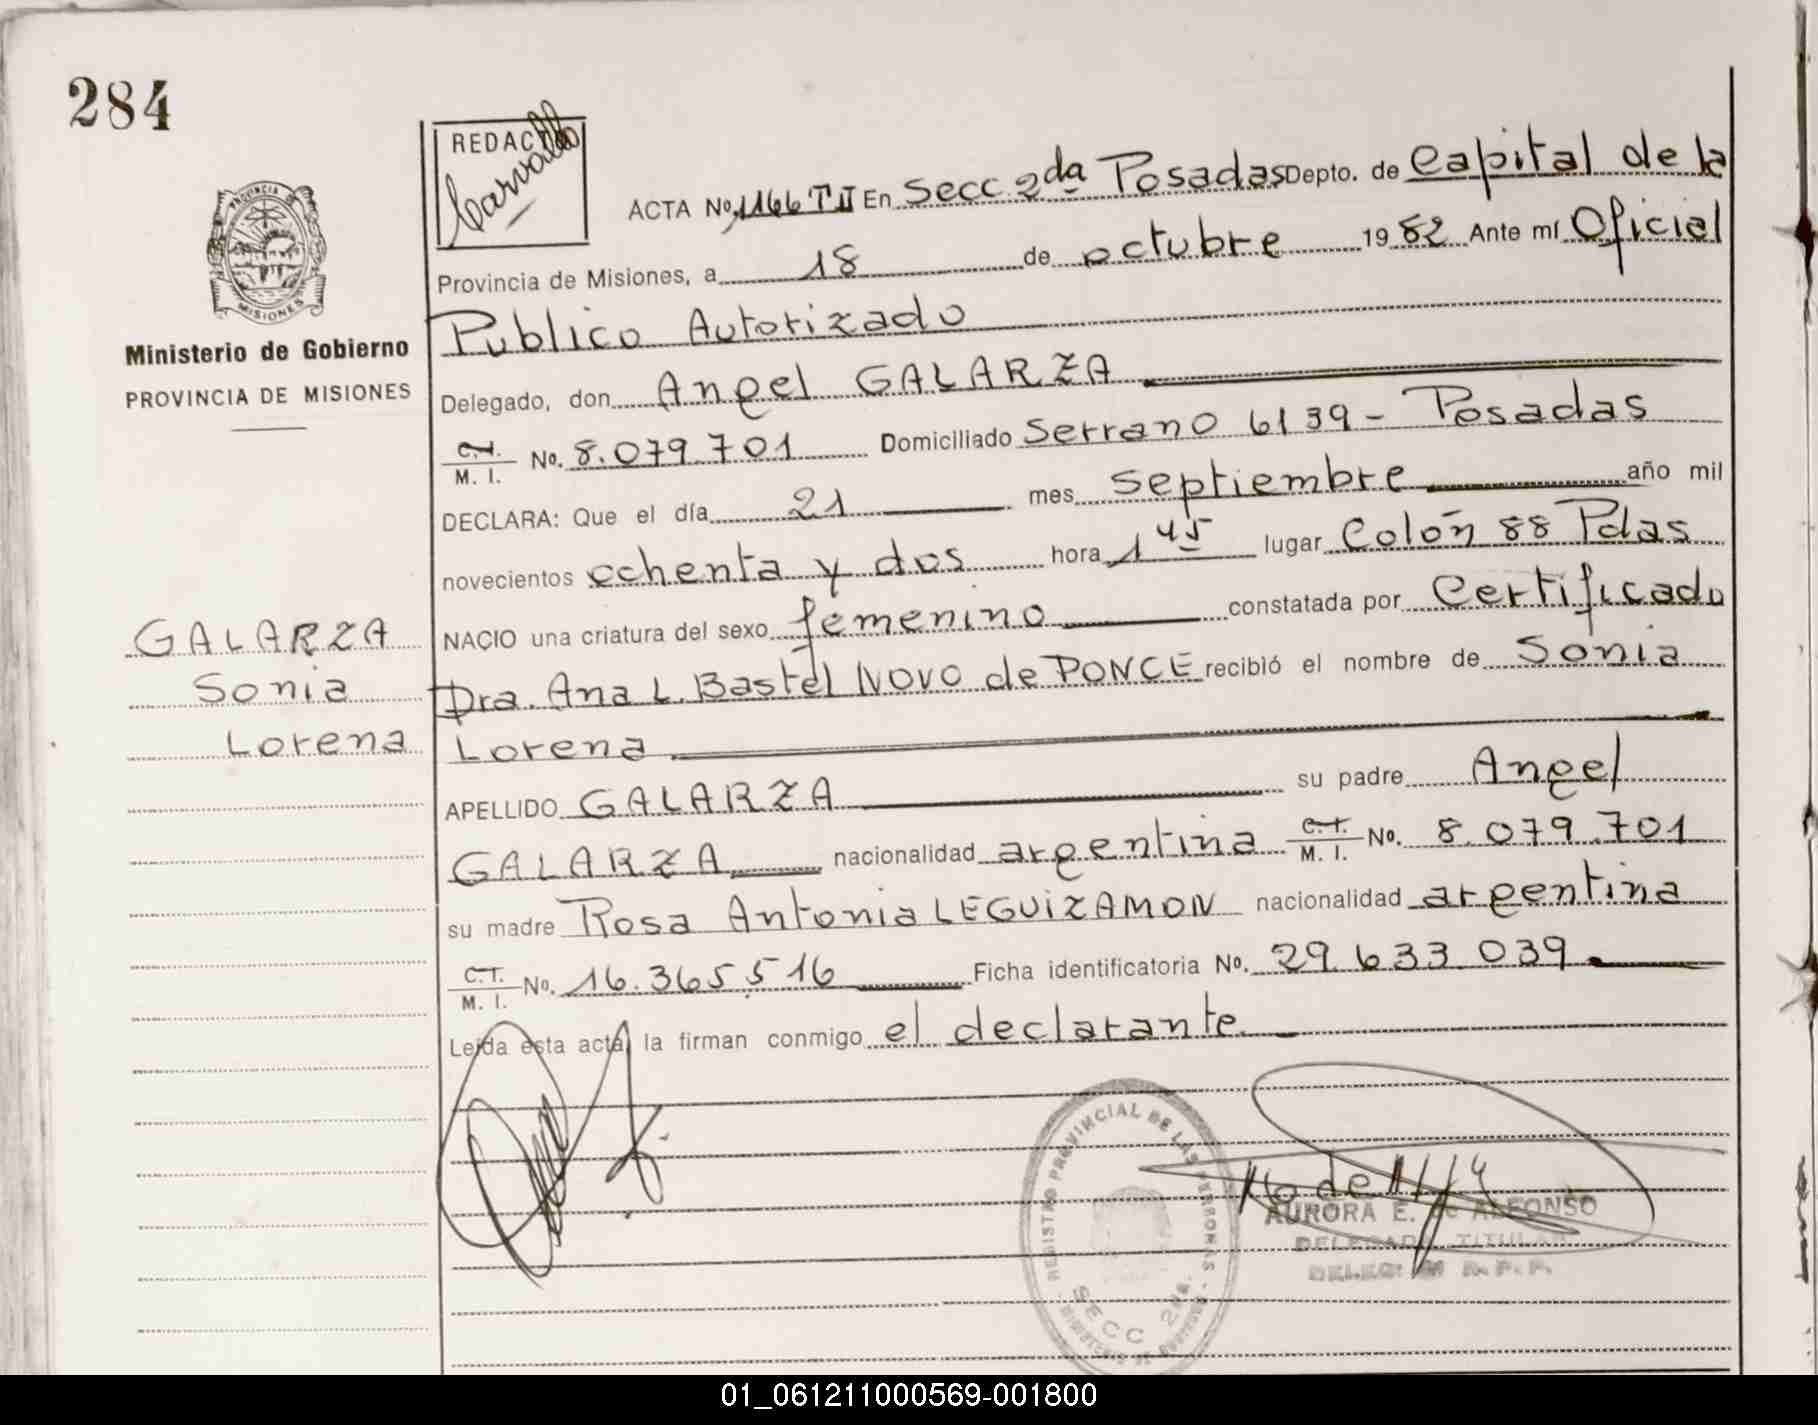 284
REDACTO
Carvallo
PROVINCIA DE
MISIONES
Ministerio de Gobierno
PROVINCIA DE MISIONES
ACTA No. 1166 T II En Secc. 2da Posadas Depto. de Capital de la
Provincia de Misiones, a 18 de octubre 1982 Ante mí Oficial
Publico Autorizado
Delegado, don Angel GALARZA
C.I. M. I. No. 8.079.701 Domiciliado Serrano 6139 - Posadas
DECLARA: Que el día 21 mes septiembre año mil
novecientos ochenta y dos hora 1 45 lugar Colón 88 Pdas
NACIO una criatura del sexo femenino constatada por Certificado
Dra. Ana L. Bastel NOVO de PONCE recibió el nombre de Sonia
Lorena
APELLIDO GALARZA su padre Angel
GALARZA nacionalidad argentina C.I. M. I. No. 8.079.701
su madre Rosa Antonia LEGUIZAMON nacionalidad argentina
C.I. M. I. No. 16.365.516 Ficha identificatoria No. 29.633.039
Leída esta acta, la firman conmigo el declarante.
GALARZA
Sonia
Lorena
REGISTRO PROVINCIAL DE LAS PERSONAS
SECC 2da.
AURORA E. de ALFONSO
DELEGADA TITULAR
01_061211000569-001800